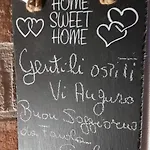 HOME
SWEET
HOME
Gentili ospiti
Vi Auguro
Buon Soggiorno
da